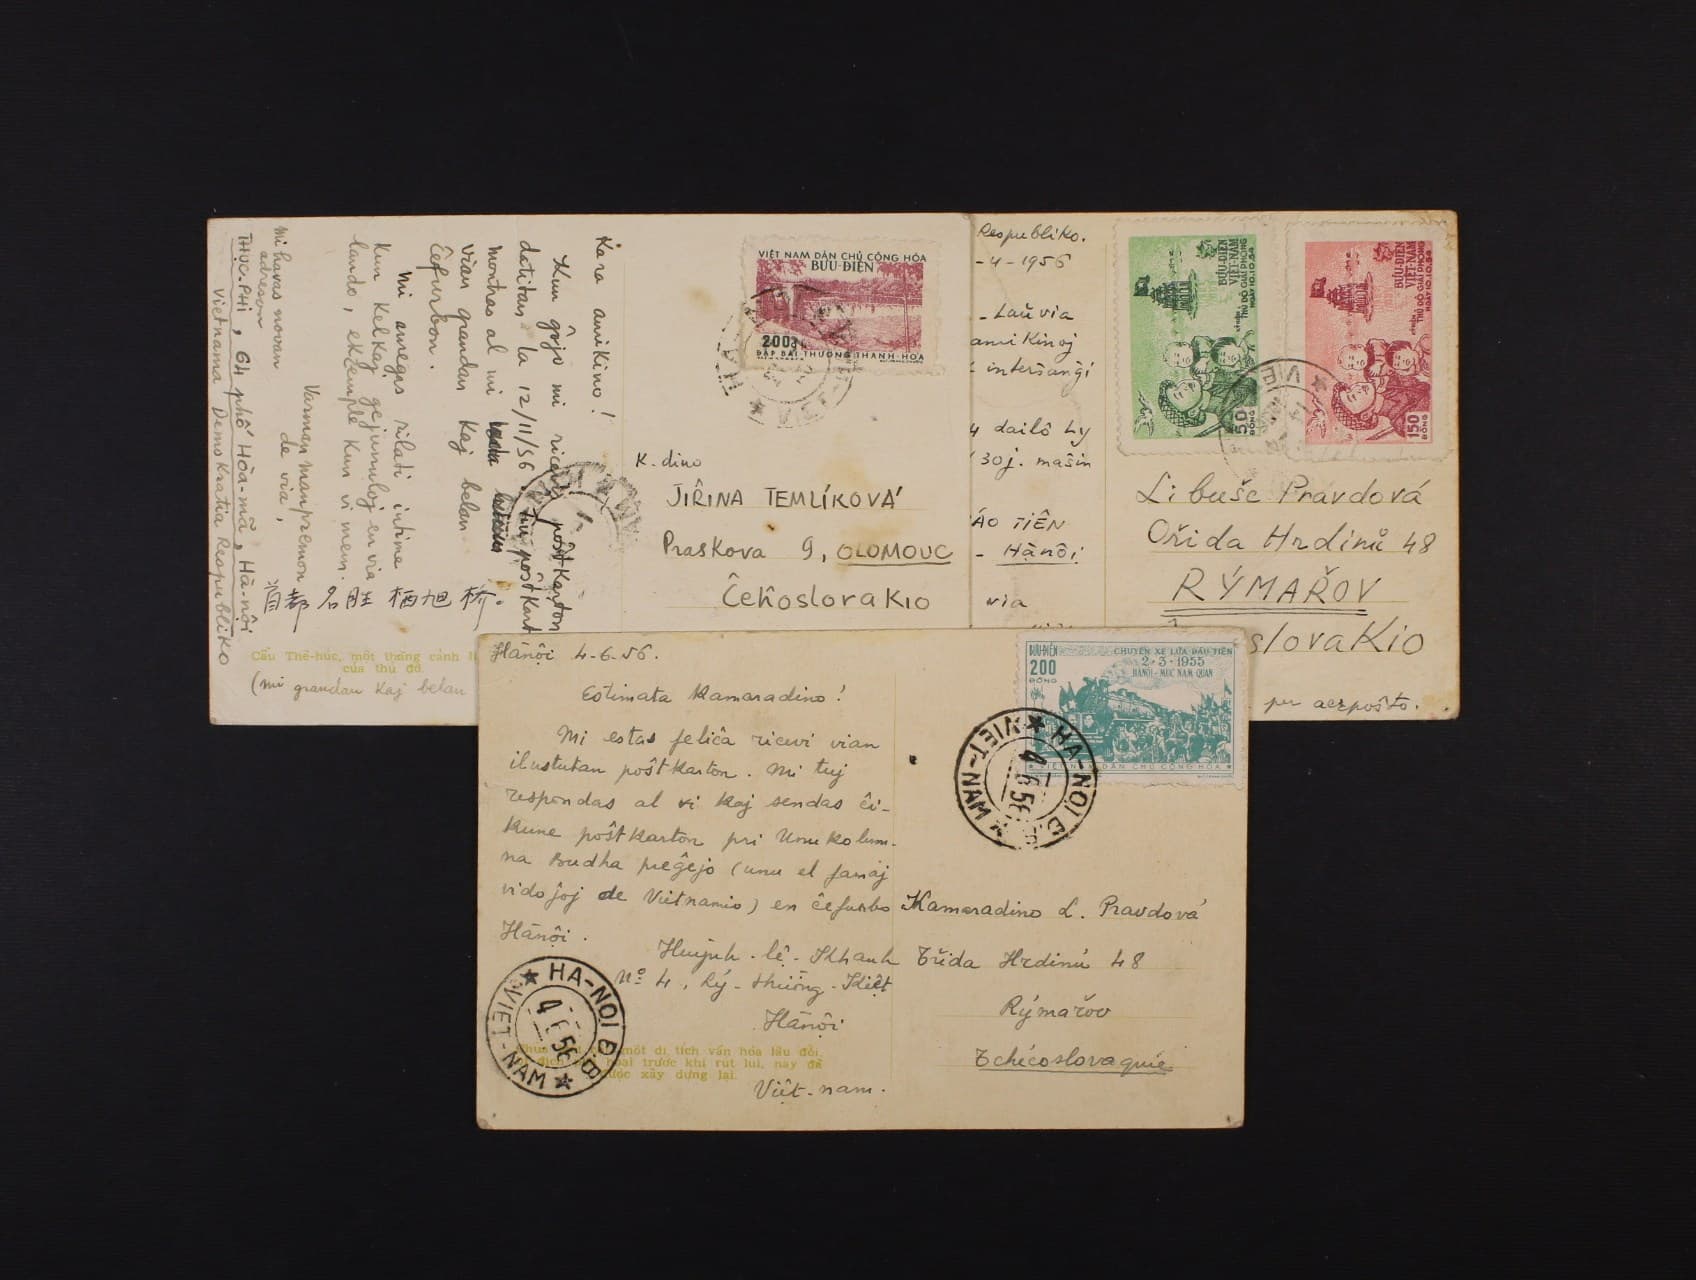 Kara amikino!
Kun ĝojo mi ricevis poŝtkarton
datitan la 12/11/56. Tiu poŝtkart
montras al mi
vian grandan kaj belan
ĉefurbon.
Mi amegas rilati intime
kun kelkaj gejunuloj en via
lando, ekzemple kun vi mem.
Varman manpremon
de via,
mi havas novan
adreson
THỤC.PHI, 64 phố Hòa-mã, Hà-nội
Vietnama Demokratia Respubliko
首都 名胜 栖旭 桥.
Cầu Thê-húc, một thắng cảnh
của thủ đô.
(mi grandan kaj belan
VIỆT NAM DÂN CHỦ CỘNG HÒA
BƯU-ĐIỆN
200đ
ĐẬP BÁI-THƯỢNG THANH-HÓA
K-dino
JIŘINA TEMLÍKOVÁ
Praskova 9, OLOMOUC
Ĉeĥoslovakio
Respubliko.
-4-1956
-Laŭ via
amikinoj
interŝanĝi
4 dailô Ly
30j. maŝin
ÁO TIÊN
- Hànôi
via
BƯU-ĐIỆN
VIỆT-NAM
THỦ ĐÔ GIẢI PHÓNG
NGÀY 10.10.54
50
ĐỒNG
BƯU-ĐIỆN
VIỆT-NAM
THỦ ĐÔ GIẢI PHÓNG
NGÀY 10.10.54
150
ĐỒNG
VIET
Libuše Pravdová
Třida Hrdinů 48
RÝMAŘOV
slovakio
per aerpoŝto.
Hànội 4-6-56.
Estimata Kamaradino!
Mi estas feliĉa ricevi vian
ilustritan poŝtkarton. Mi tuj
respondas al vi kaj sendas ĉi-
kune poŝtkarton pri Unukolum-
na Budha preĝejo (unu el famaj
vidoĵoj de Vietnamio) en ĉefurbo
Hànội.
Huỳnh-lệ-Khanh
Nº 4, Lý-thường-Kiệt
Hànội
Việt-nam.
một di tích văn hóa lâu đời
hoại trước khi rút lui, nay đã
được xây dựng lại.
HA-NỌI Đ.B.
VIET-NAM
4 6 56
BƯU-ĐIỆN
200
ĐỒNG
CHUYẾN XE LỬA ĐẦU TIÊN
2-3-1955
HANỘI - MỤC NAM QUAN
VIỆT NAM DÂN CHỦ CỘNG HÒA
HA-NỌI Đ.B.
VIET-NAM
4 6 56
Kamaradino L. Pravdová
Třida Hrdinů 48
Rýmařov
Tchécoslovaquie